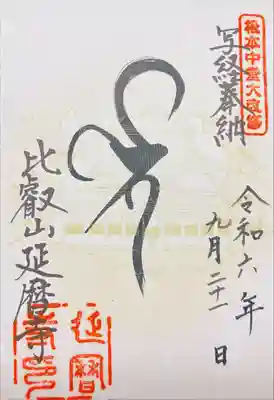 根本中堂大改修
写経奉納
令和六年
九月二十一日
比叡山延暦寺
延暦
寺印